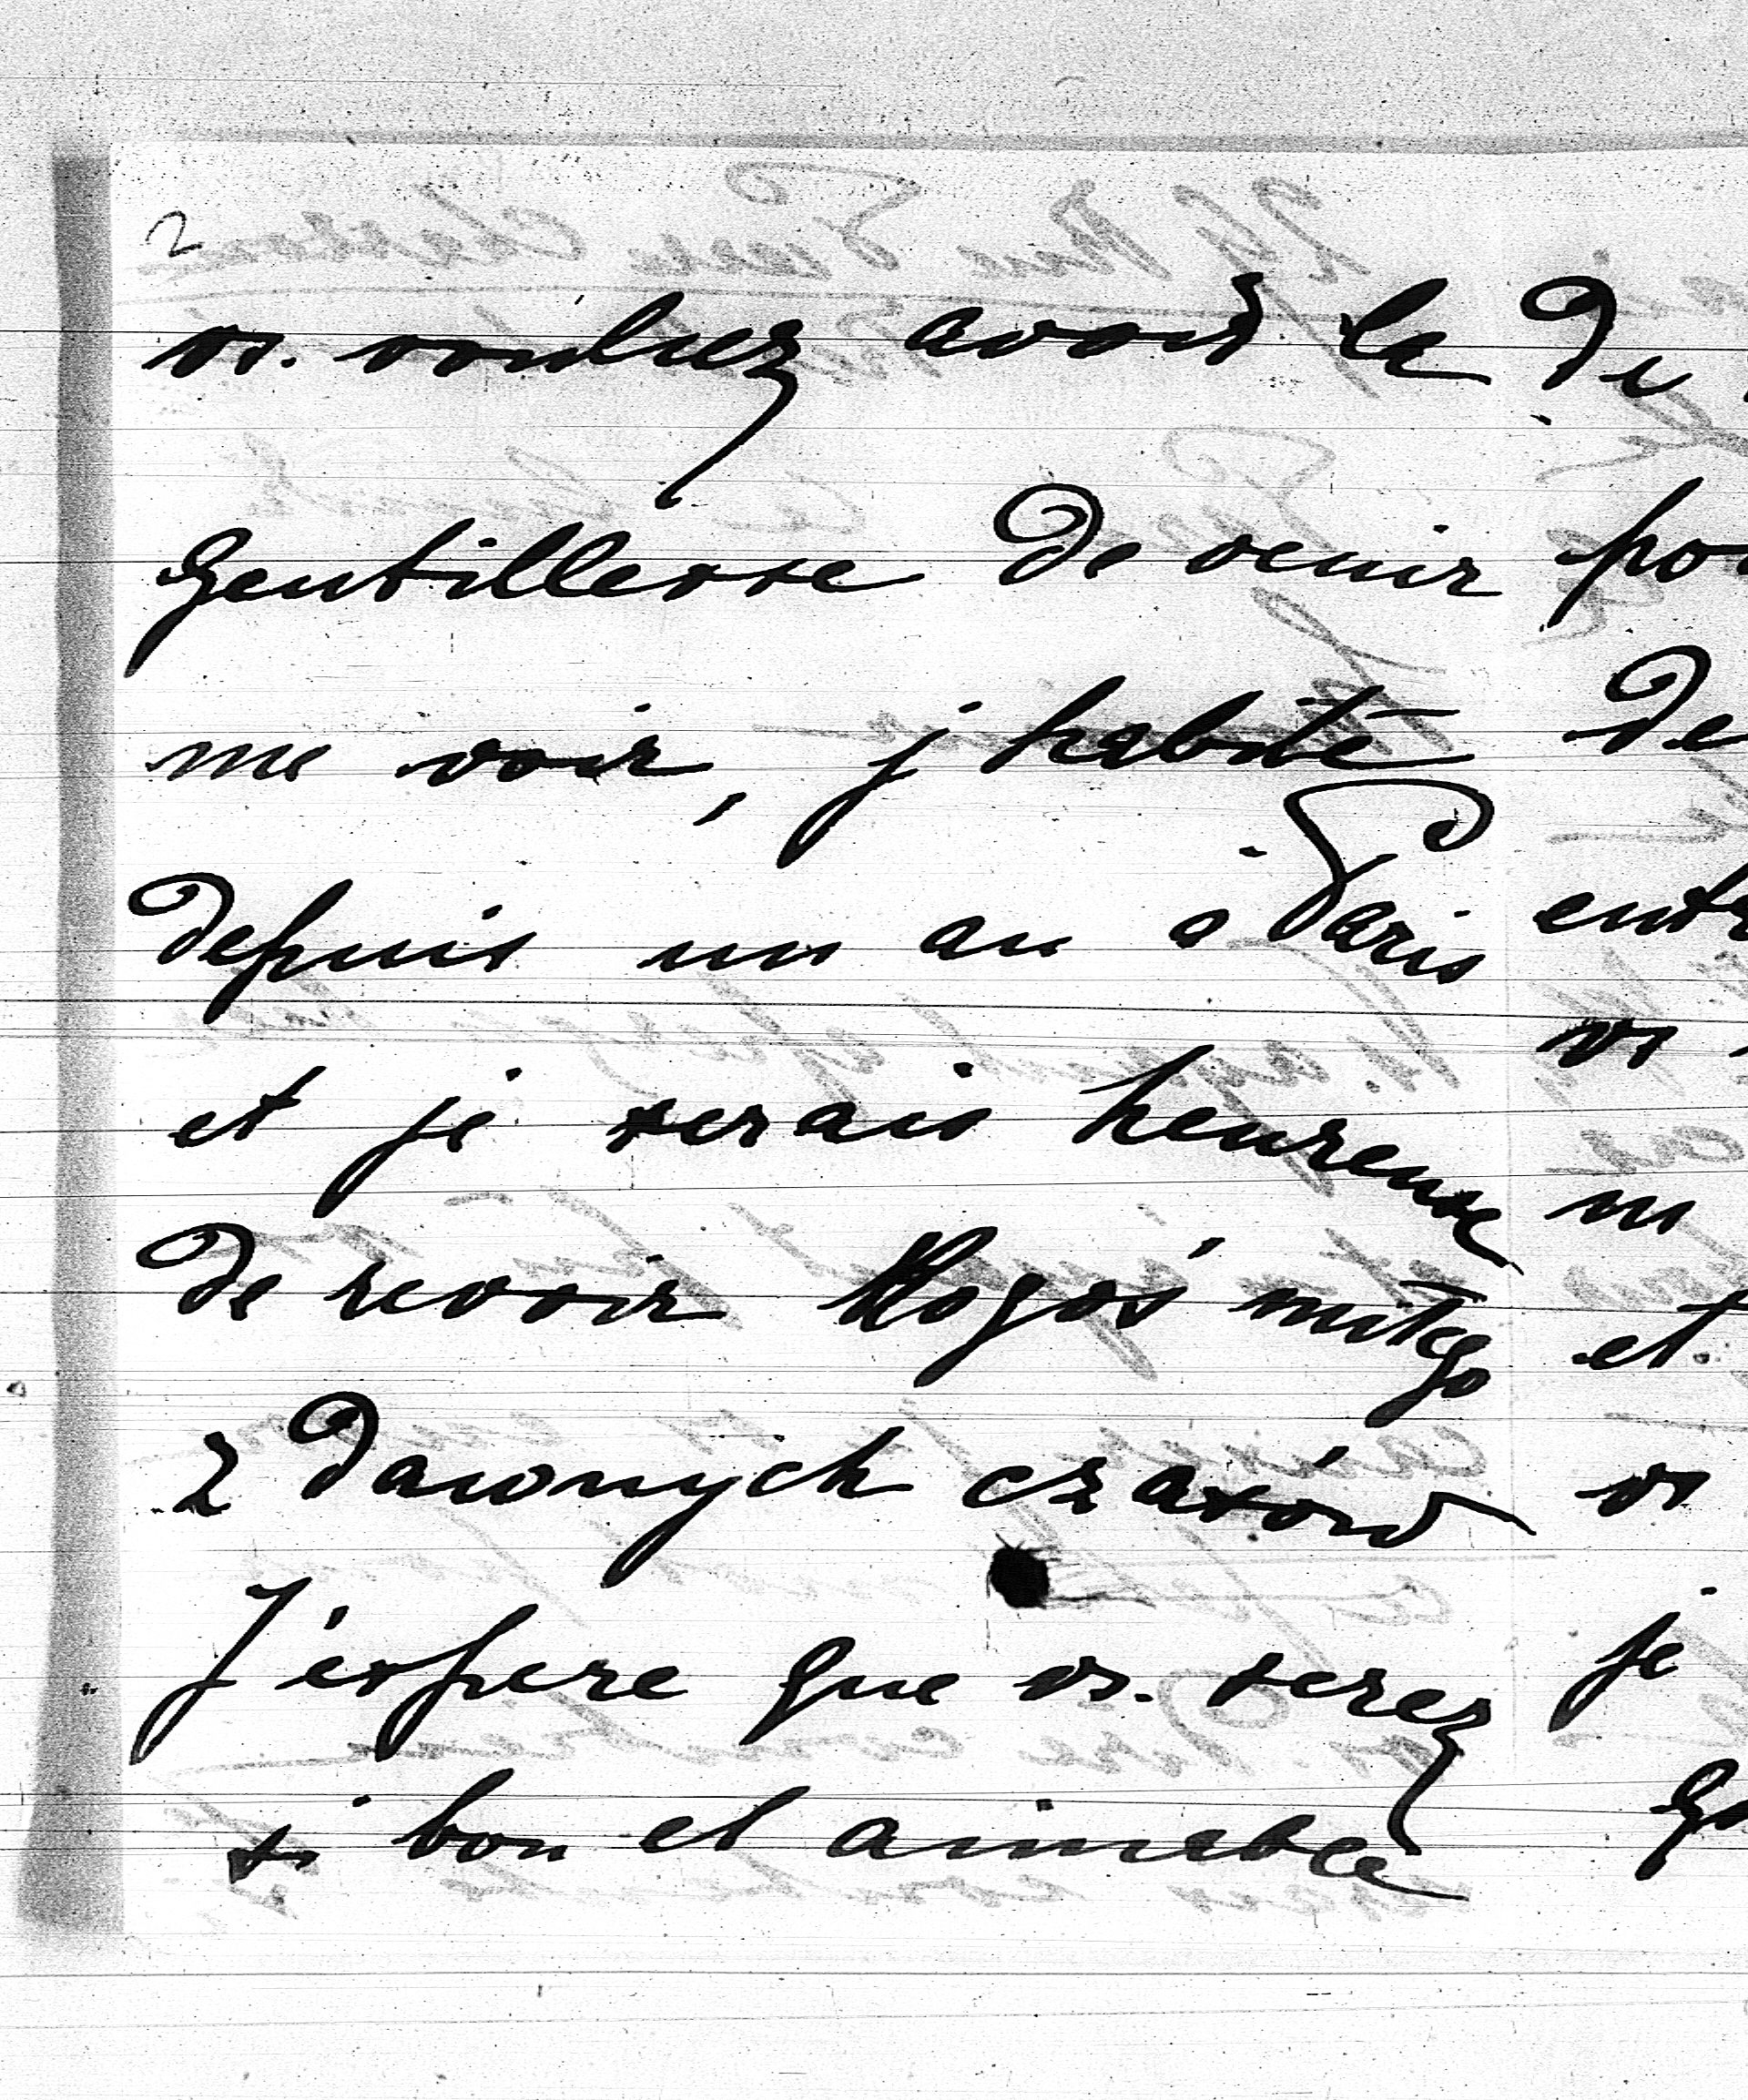 2
vs. vouliez avoir la
gentillesse de venir
me voir, j habite
depuis un an a Paris
et je serais heureuse
de revoir Kogoś miłego
z dawnych czasów
J'éspere que vs. serez
si bon et aimable
De
po
de
entr
vs
m
et
vs
je